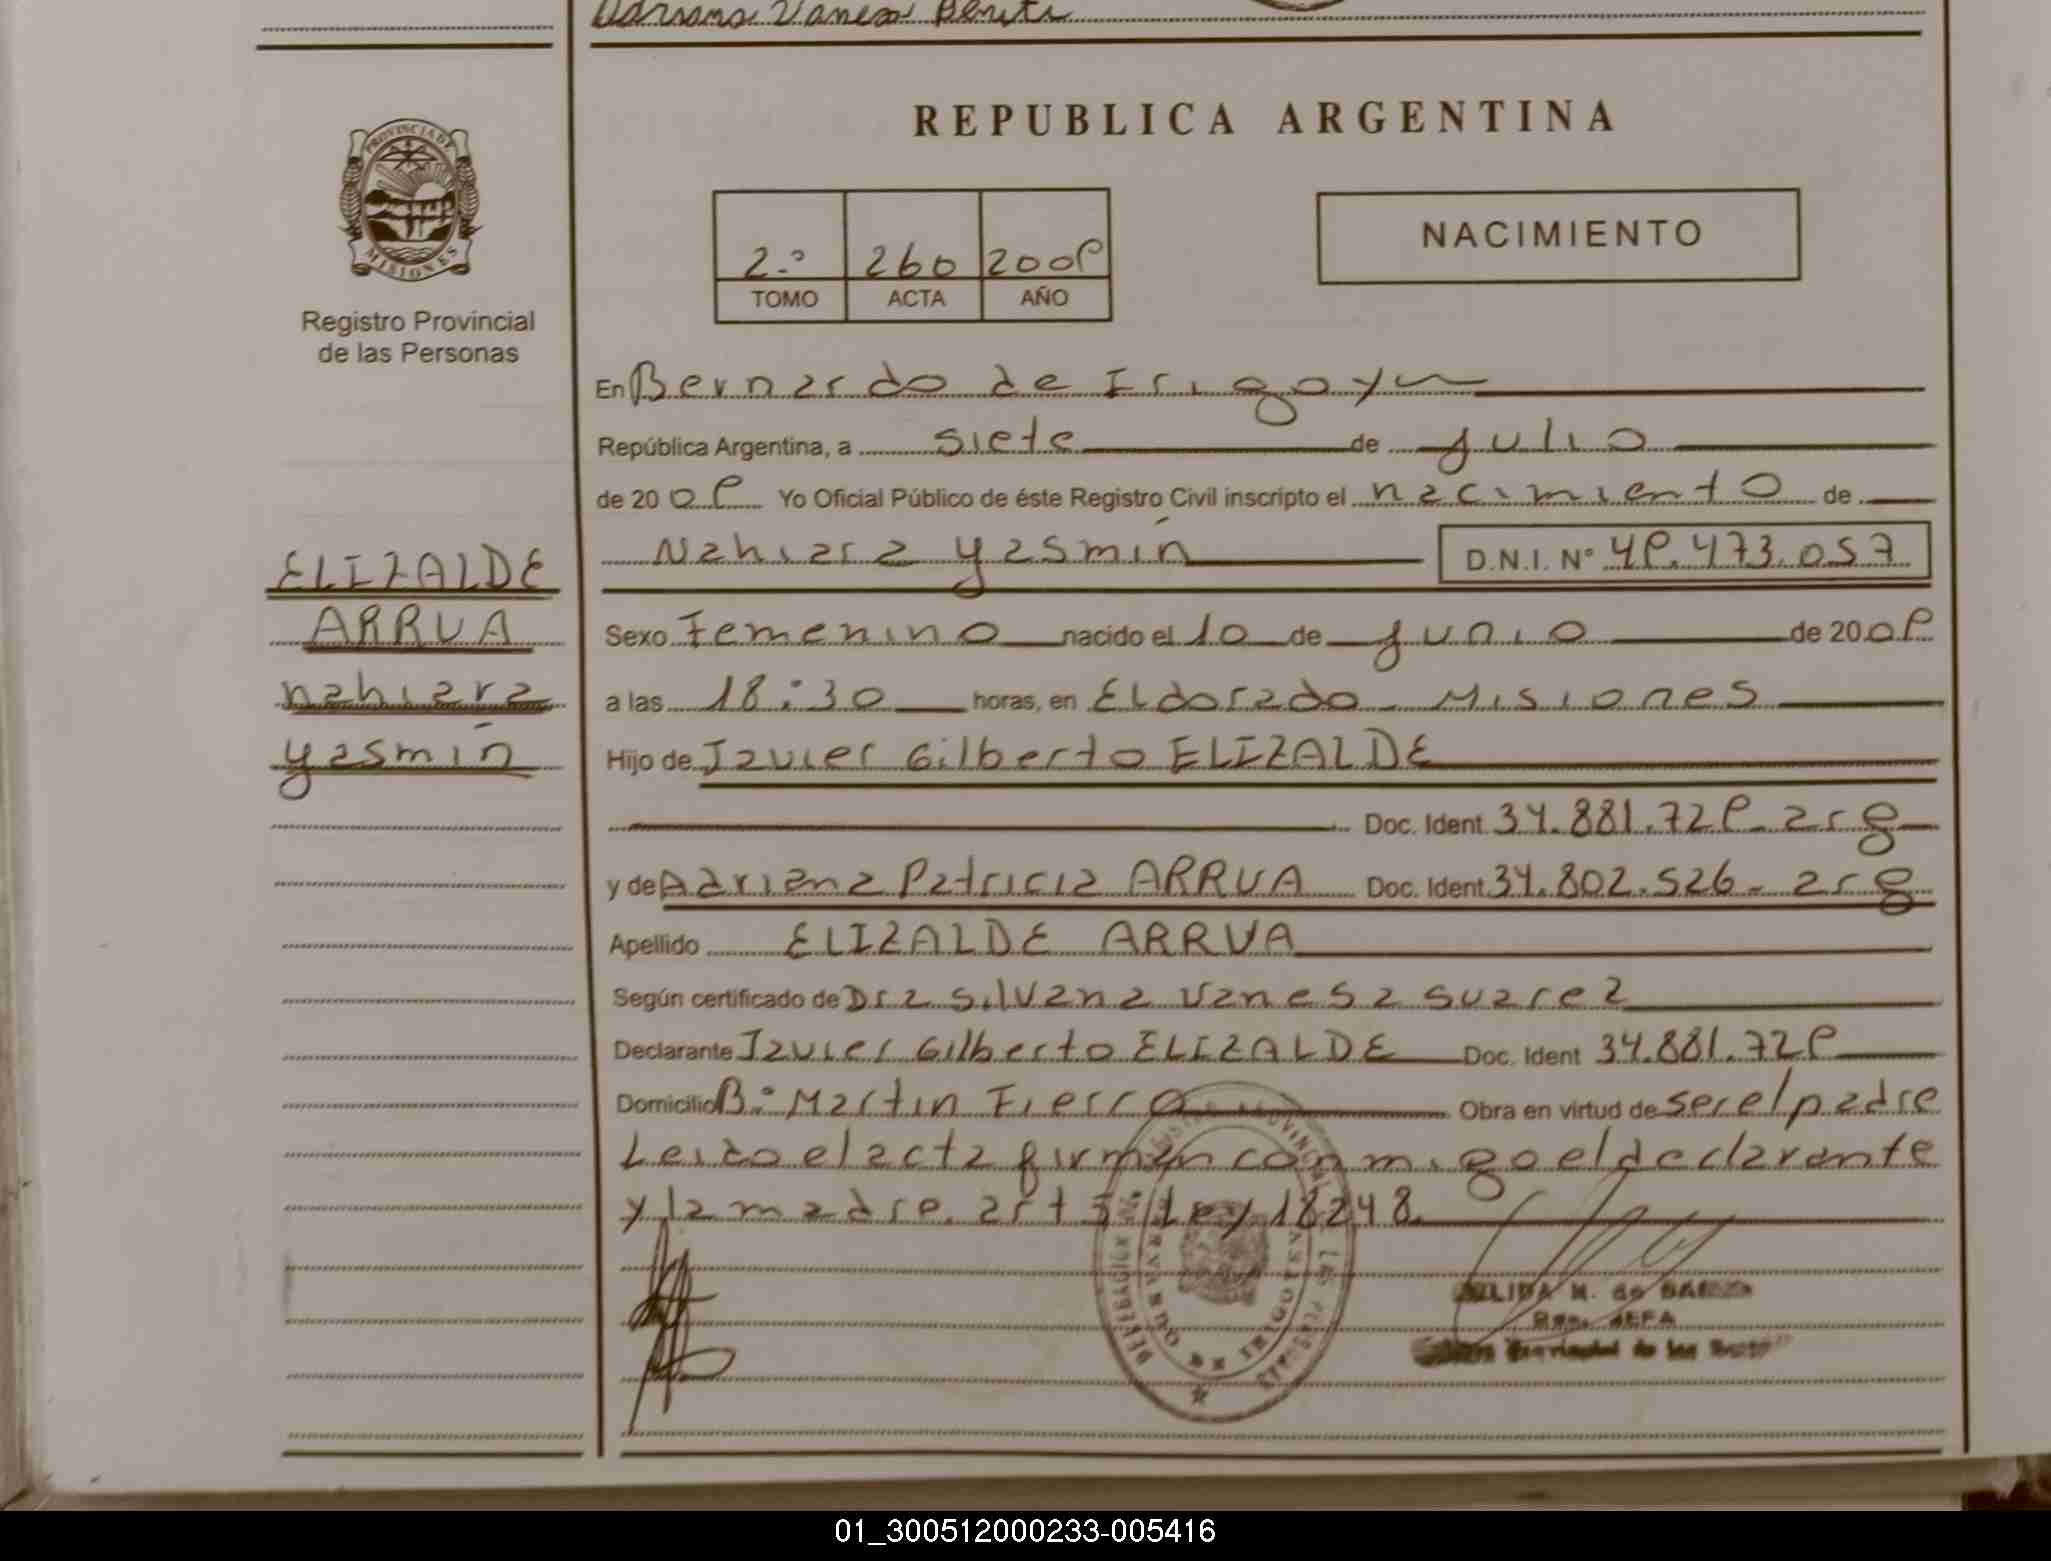 Adriana Vanesa Benitz
REPUBLICA ARGENTINA
PROVINCIA DE
MISIONES
Registro Provincial
de las Personas
2.° 260 2009
TOMO ACTA AÑO
NACIMIENTO
ELIZALDE
ARRUA
nahiara
yasmín
En Bernardo de Irigoyen
República Argentina, a siete de julio
de 2009 Yo Oficial Público de éste Registro Civil inscripto el nacimiento de
Nahiara yasmín D.N.I. N° 49.473.057
Sexo Femenino nacido el 10 de junio de 2009
a las 18:30 horas, en Eldorado - Misiones
Hijo de Javier Gilberto ELIZALDE
Doc. Ident 34.881.729 - arg
y de Adriana Patricia ARRUA Doc. Ident 34.802.526 - arg
Apellido ELIZALDE ARRUA
Según certificado de Dra Silvana Vanesa Suarez
Declarante Javier Gilberto ELIZALDE Doc. Ident 34.881.729
Domicilio B.° Martin Fierro Obra en virtud de ser el padre
Leido el acta firman conmigo el declarante
y la madre. art 5 Ley 18248.
01_300512000233-005416